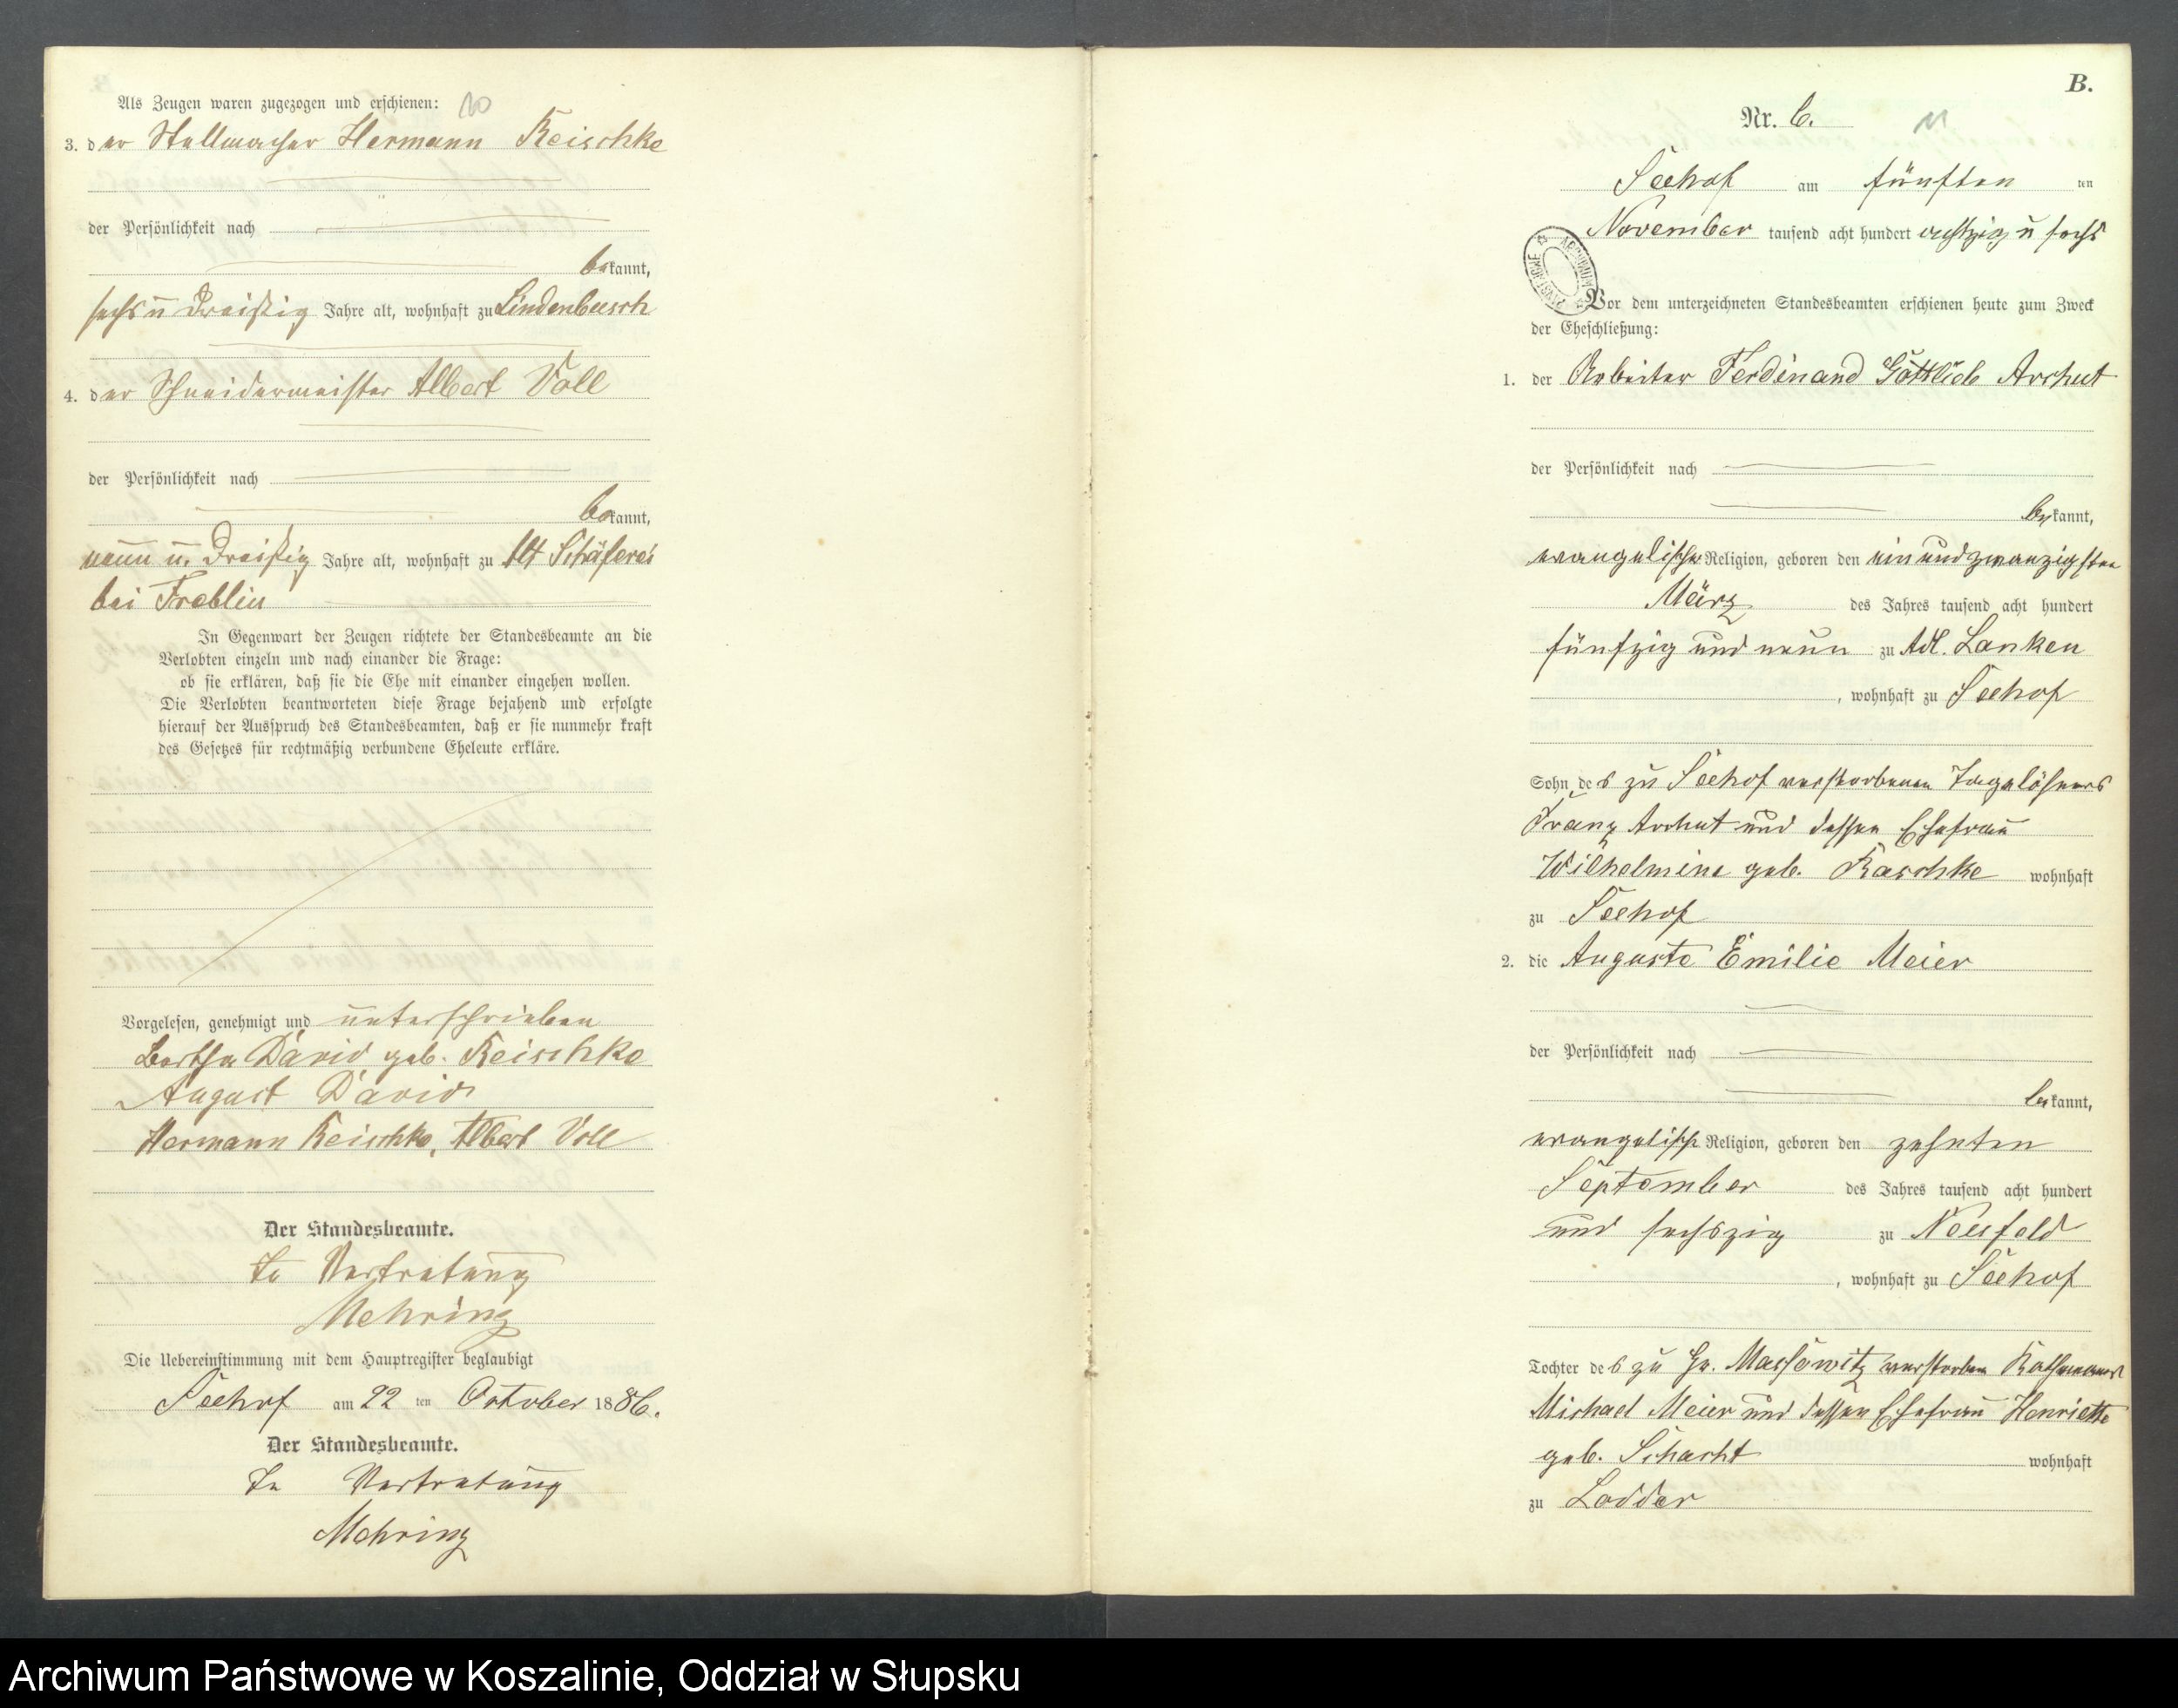 Als Zeugen waren zugezogen und erschienen: 10
3. der Stellmacher Hermann Reischke
der Persönlichkeit nach
bekannt,
sechs u Dreißig Jahre alt, wohnhaft zu Lindenbusch
4. der Schneidermeister Albert Voll
der Persönlichkeit nach
bekannt,
neun u. Dreißig Jahre alt, wohnhaft zu Alt Schäferei
bei Treblin
In Gegenwart der Zeugen richtete der Standesbeamte an die
Verlobten einzeln und nach einander die Frage:
ob sie erklären, daß sie die Ehe mit einander eingehen wollen.
Die Verlobten beantworteten diese Frage bejahend und erfolgte
hierauf der Ausspruch des Standesbeamten, daß er sie nunmehr kraft
des Gesetzes für rechtmäßig verbundene Eheleute erkläre.
Vorgelesen, genehmigt und unterschrieben
Bertha David geb. Reischke
August David
Hermann Reischke, Albert Voll
Der Standesbeamte.
In Vertretung
Mehring
Die Uebereinstimmung mit dem Hauptregister beglaubigt
Seehof am 22 ten October 1886.
Der Standesbeamte.
In Vertretung
Mehring
B.
Nr. 6. 11
Seehof am fünften ten
November tausend acht hundert achtzig u sechs
Vor dem unterzeichneten Standesbeamten erschienen heute zum Zweck
der Eheschließung:
1. der Arbeiter Ferdinand Gottlieb Archut
der Persönlichkeit nach
bekannt,
evangelischer Religion, geboren den ein und zwanzigsten
März des Jahres tausend acht hundert
fünfzig und neun zu Adl. Lanken
, wohnhaft zu Seehof
Sohn des zu Seehof verstorbenen Tagelöhners
Franz Archut und dessen Ehefrau
Wilhelmine geb. Raschke wohnhaft
zu Seehof
2. die Auguste Emilie Meier
der Persönlichkeit nach
bekannt,
evangelisch Religion, geboren den zehnten
September des Jahres tausend acht hundert
und sechszig zu Neufeld
, wohnhaft zu Seehof
Tochter des zu Gr. Massowitz verstorben
Michael Meier und dessen Ehefrau Henriette
geb. Schacht wohnhaft
zu Lodder
Archiwum Państwowe w Koszalinie, Oddział w Słupsku